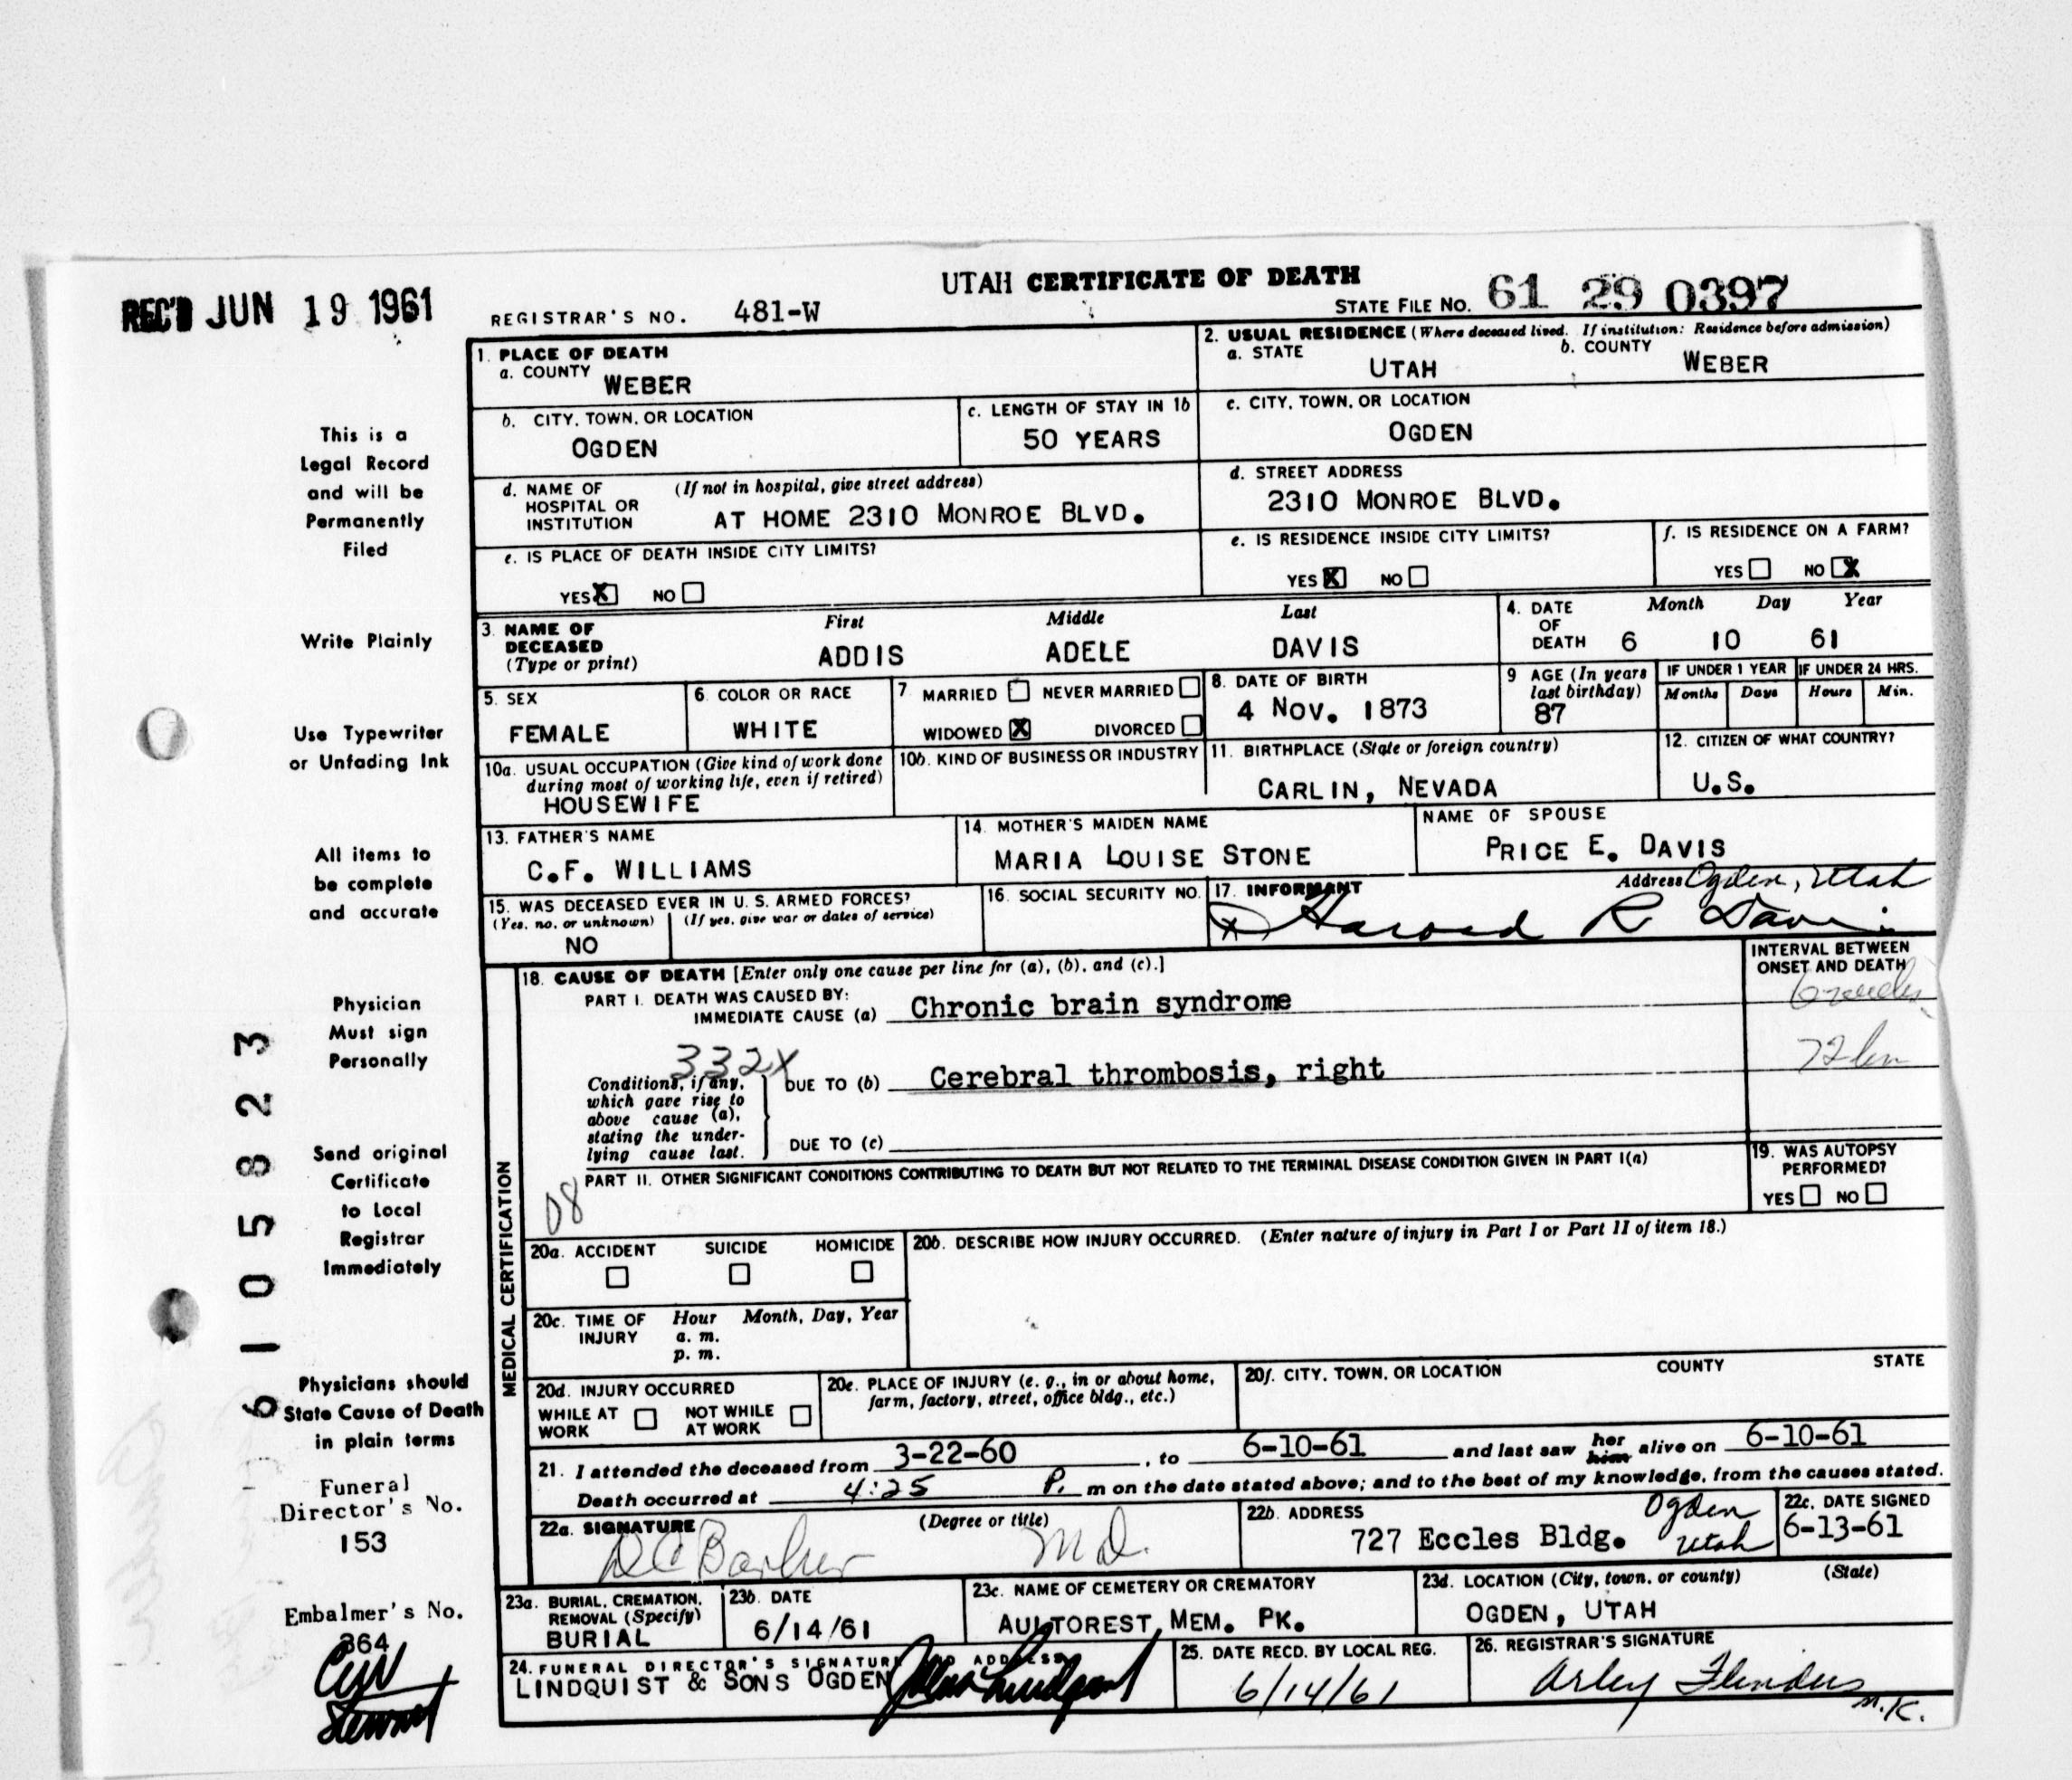 REC'D JUN 19 1961
UTAH CERTIFICATE OF DEATH
REGISTRAR'S NO. 481-W
STATE FILE NO. 61 29 0397
This is a
Legal Record
and will be
Permanently
Filed
Write Plainly
Use Typewriter
or Unfading Ink
All items to
be complete
and accurate
Physician
Must sign
Personally
Send original
Certificate
to Local
Registrar
Immediately
Physicians should
State Cause of Death
in plain terms
Funeral
Director's No.
153
Embalmer's No.
364
Stewart
6105823
1. PLACE OF DEATH
a. COUNTY WEBER
2. USUAL RESIDENCE (Where deceased lived. If institution: Residence before admission)
a. STATE UTAH b. COUNTY WEBER
b. CITY, TOWN, OR LOCATION
OGDEN
c. LENGTH OF STAY IN 1b
50 YEARS
c. CITY, TOWN, OR LOCATION
OGDEN
d. NAME OF HOSPITAL OR INSTITUTION (If not in hospital, give street address)
AT HOME 2310 MONROE BLVD.
d. STREET ADDRESS
2310 MONROE BLVD.
e. IS PLACE OF DEATH INSIDE CITY LIMITS?
YES X NO
e. IS RESIDENCE INSIDE CITY LIMITS?
YES X NO
f. IS RESIDENCE ON A FARM?
YES NO X
3. NAME OF DECEASED (Type or print)
First Middle Last
ADDIS ADELE DAVIS
4. DATE OF DEATH
Month Day Year
6 10 61
5. SEX
FEMALE
6. COLOR OR RACE
WHITE
7 MARRIED NEVER MARRIED
WIDOWED X DIVORCED
8. DATE OF BIRTH
4 NOV. 1873
9 AGE (In years last birthday)
87
IF UNDER 1 YEAR
Months Days
IF UNDER 24 HRS.
Hours Min.
10a. USUAL OCCUPATION (Give kind of work done during most of working life, even if retired)
HOUSEWIFE
10b. KIND OF BUSINESS OR INDUSTRY
11. BIRTHPLACE (State or foreign country)
CARLIN, NEVADA
12. CITIZEN OF WHAT COUNTRY?
U.S.
13. FATHER'S NAME
C.F. WILLIAMS
14. MOTHER'S MAIDEN NAME
MARIA LOUISE STONE
NAME OF SPOUSE
PRICE E. DAVIS
15. WAS DECEASED EVER IN U. S. ARMED FORCES?
(Yes, no, or unknown) (If yes, give war or dates of service)
NO
16. SOCIAL SECURITY NO.
17. INFORMANT Address Ogden, Utah
X Harold R Davis
18. CAUSE OF DEATH [Enter only one cause per line for (a), (b), and (c).]
INTERVAL BETWEEN ONSET AND DEATH
PART I. DEATH WAS CAUSED BY:
IMMEDIATE CAUSE (a) Chronic brain syndrome
332X
Conditions, if any, which gave rise to above cause (a), stating the underlying cause last.
DUE TO (b) Cerebral thrombosis, right
DUE TO (c)
PART II. OTHER SIGNIFICANT CONDITIONS CONTRIBUTING TO DEATH BUT NOT RELATED TO THE TERMINAL DISEASE CONDITION GIVEN IN PART I(a)
08
19. WAS AUTOPSY PERFORMED?
YES NO
MEDICAL CERTIFICATION
20a. ACCIDENT SUICIDE HOMICIDE
20b. DESCRIBE HOW INJURY OCCURRED. (Enter nature of injury in Part I or Part II of item 18.)
20c. TIME OF INJURY
Hour Month, Day, Year
a. m.
p. m.
20d. INJURY OCCURRED
WHILE AT WORK NOT WHILE AT WORK
20e. PLACE OF INJURY (e. g., in or about home, farm, factory, street, office bldg., etc.)
20f. CITY, TOWN, OR LOCATION COUNTY STATE
21. I attended the deceased from 3-22-60, to 6-10-61 and last saw her him alive on 6-10-61
Death occurred at 4:25 P. m on the date stated above; and to the best of my knowledge, from the causes stated.
22a. SIGNATURE (Degree or title)
D C Barker M D.
22b. ADDRESS
727 Eccles Bldg. Ogden Utah
22c. DATE SIGNED
6-13-61
23a. BURIAL, CREMATION, REMOVAL (Specify)
BURIAL
23b. DATE
6/14/61
23c. NAME OF CEMETERY OR CREMATORY
AULTOREST MEM. PK.
23d. LOCATION (City, town, or county) (State)
OGDEN, UTAH
24. FUNERAL DIRECTOR'S SIGNATURE AND ADDRESS
LINDQUIST & SONS OGDEN
25. DATE RECD. BY LOCAL REG.
6/14/61
26. REGISTRAR'S SIGNATURE
Arley Flinders
M.K.